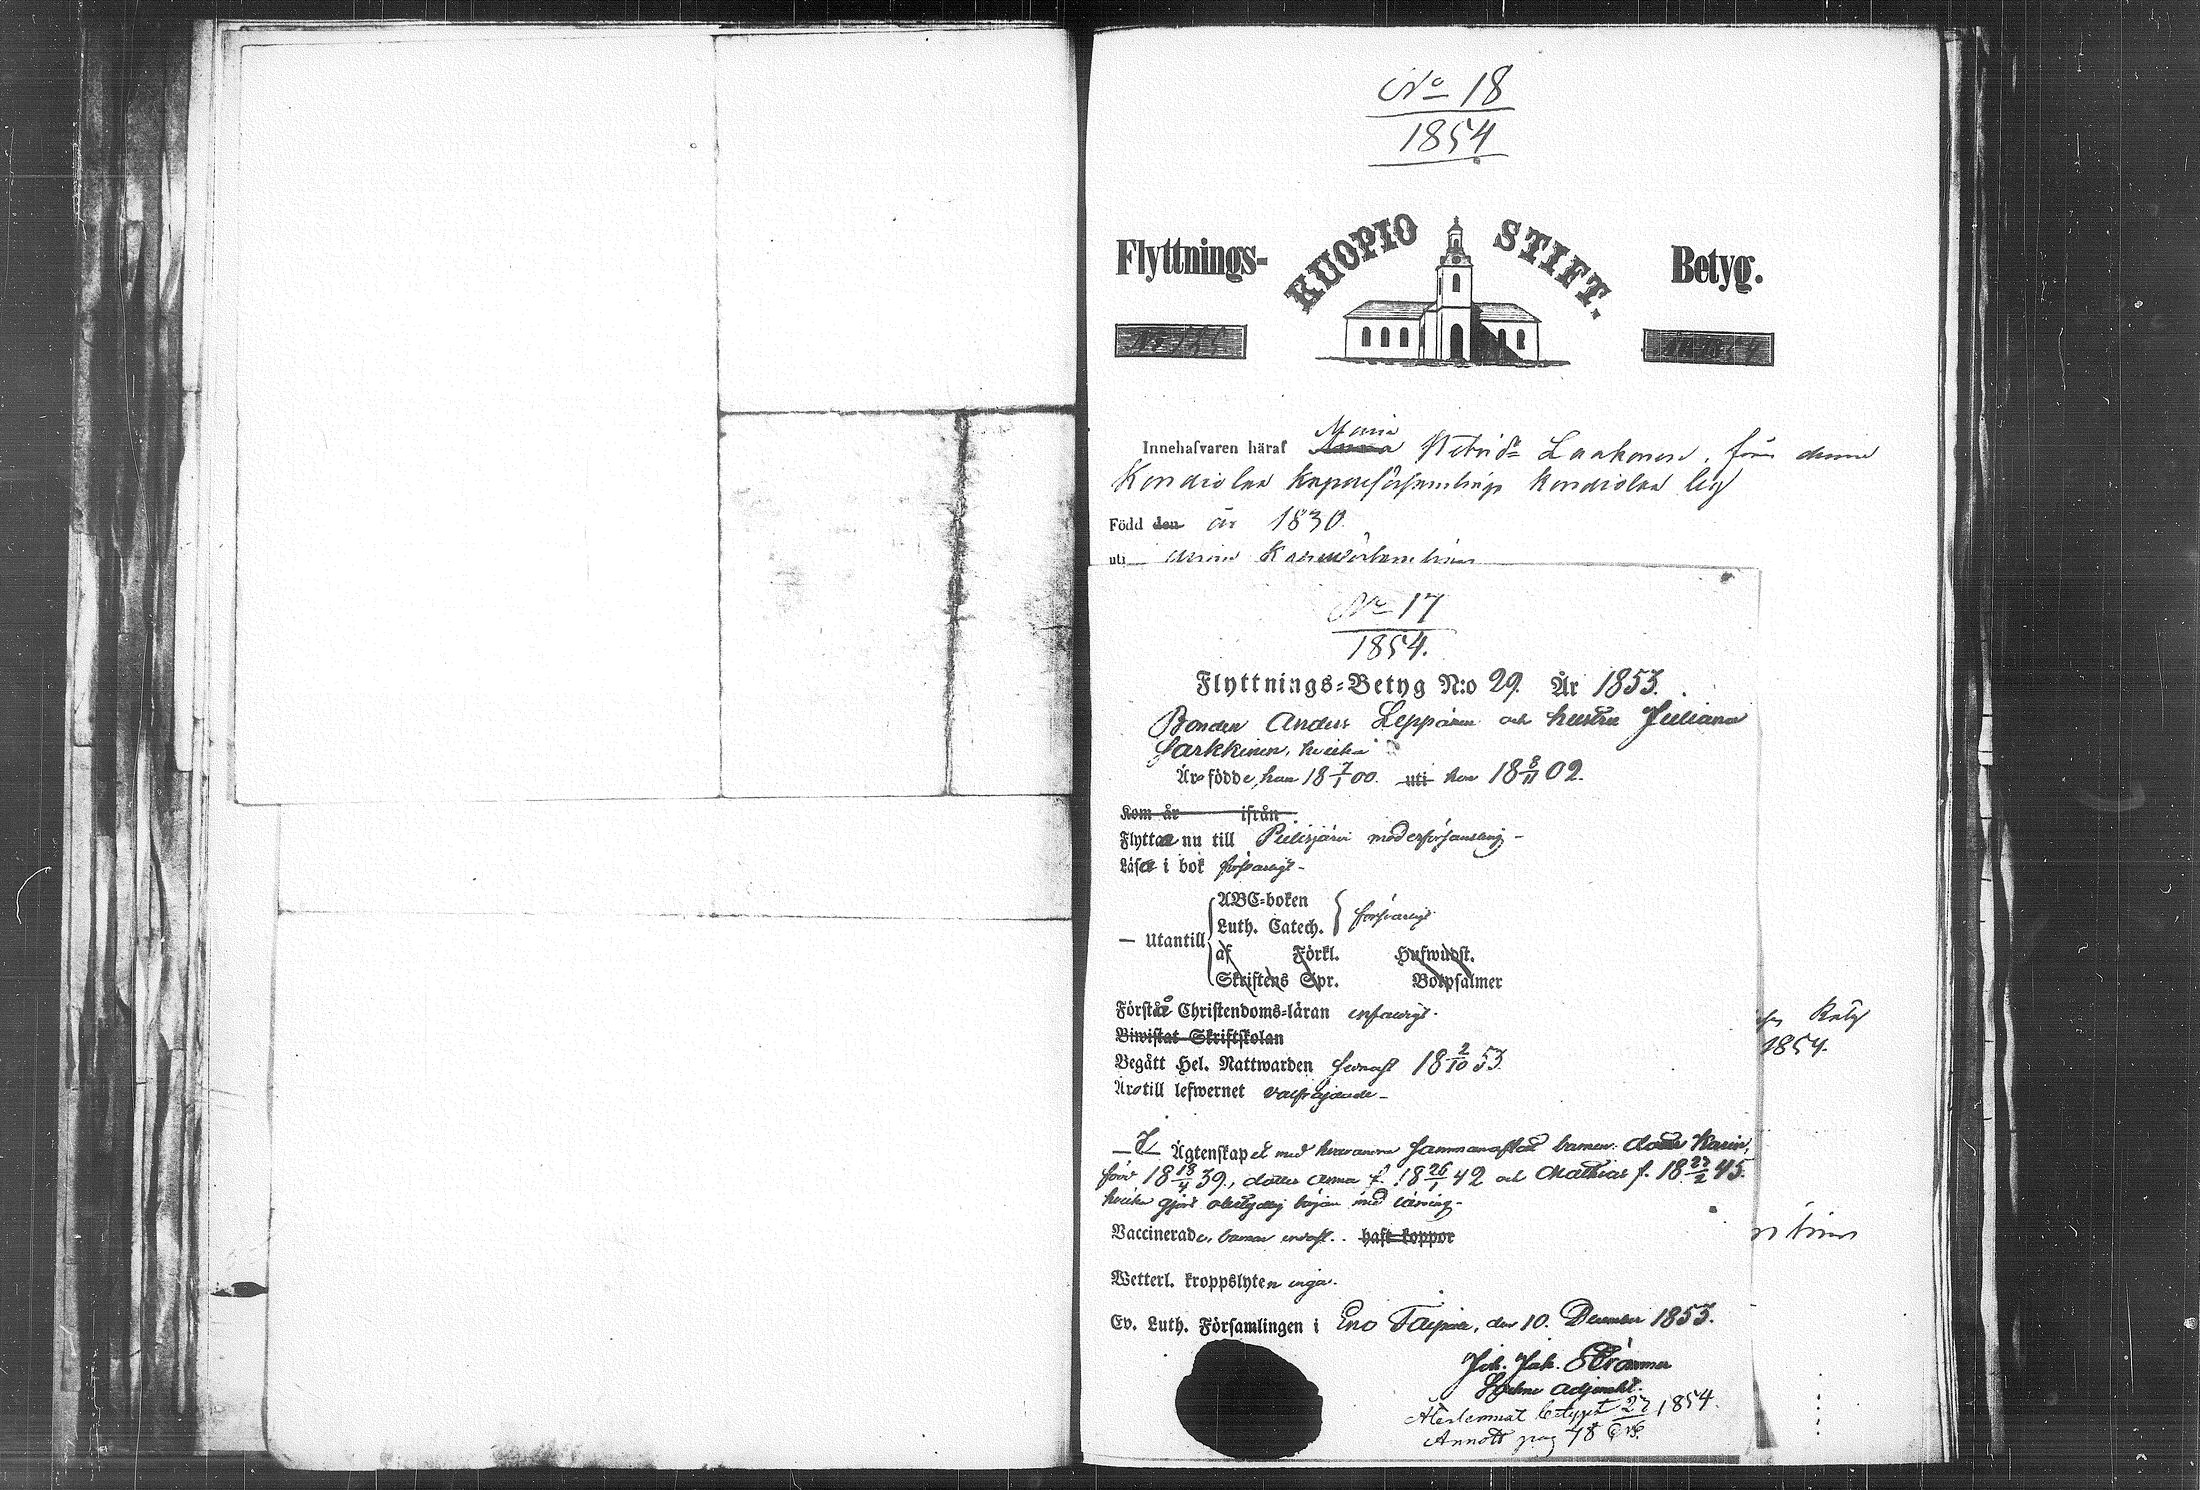 No 18
1854
Flyttnings- KUOPIO STIFT. Betyg.
Innehafvaren häraf Maria Laakonen, från denne
Kondiolax Kapellförsamlings Kondiolax by
Född den år 1830.
uti denne
No 17
1854.
Flyttnings-Betyg N:o 29. År 1853.
Bonden Anders Leppänen och hustru Juliana
Sarkkinen, hvilka
Äro födde, han 18 7/1 00. uti hon 18 8/11 02.
Kom år ifrån
Flytta nu till Pielisjärvi moderförsamling -
Läsa i bok försvarligt -
ABC-boken
Luth. Catech. försvarligt
- Utantill
af Förkl. Hufwudst.
Skriftens Spr. Botpsalmer
Förstå Christendoms-läran enfaldigt.
Biwistat Skriftskolan
Begått Hel. Nattwarden senast 18 2/10 53.
Äro till lefwernet välfrejdade -
- I Ägtenskapet med hvarannan sammanaflat barnen: dottr Karin,
född 18 18/4 39., dotter Anna f. 18 26/1 42 och Mathias f. 18 27/2 45.
hvilka gjort obetydlig början med läsning.
Vaccinerade, barnen endast. haft koppor
Wetterl. kroppslyten inga.
Ev. Luth. Församlingen i Eno Taipale, den 10. December 1853.
Joh. Jak. Strömmer
Sockne Adjunkt.
Återlemnat betyget 27 1854.
Annott pag 48
1854.